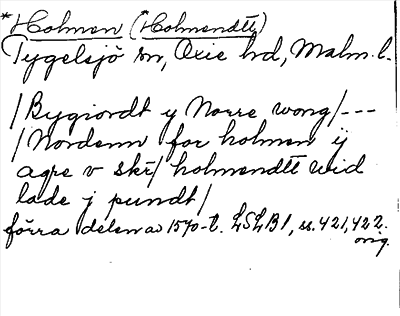 *Holmen (Holmendtt)
Tygelsjö sn, Oxie hd, Malm. l.
/Bygiordt y Norre wong/---
/Nordenn for holmen ÿ
agre v skr/ holmendtt wid
lade j pundt/
förra delen av 1570-t. LSLB1, ss. 421, 422.
orig.